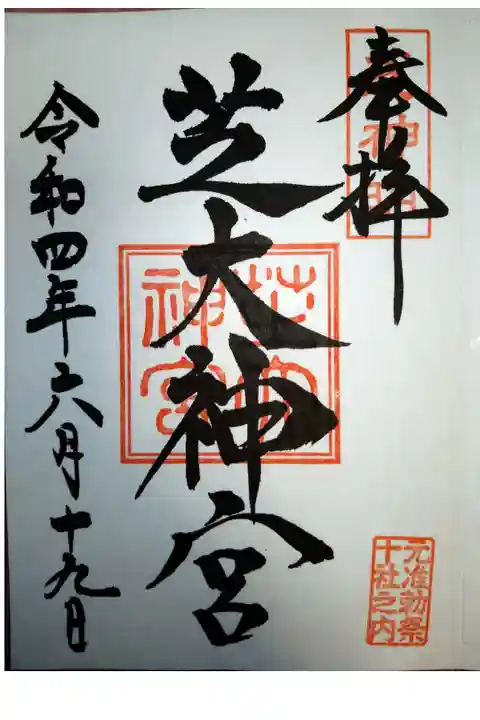 奉拝
芝大神宮
元准勅祭
十社之内
令和四年六月十九日